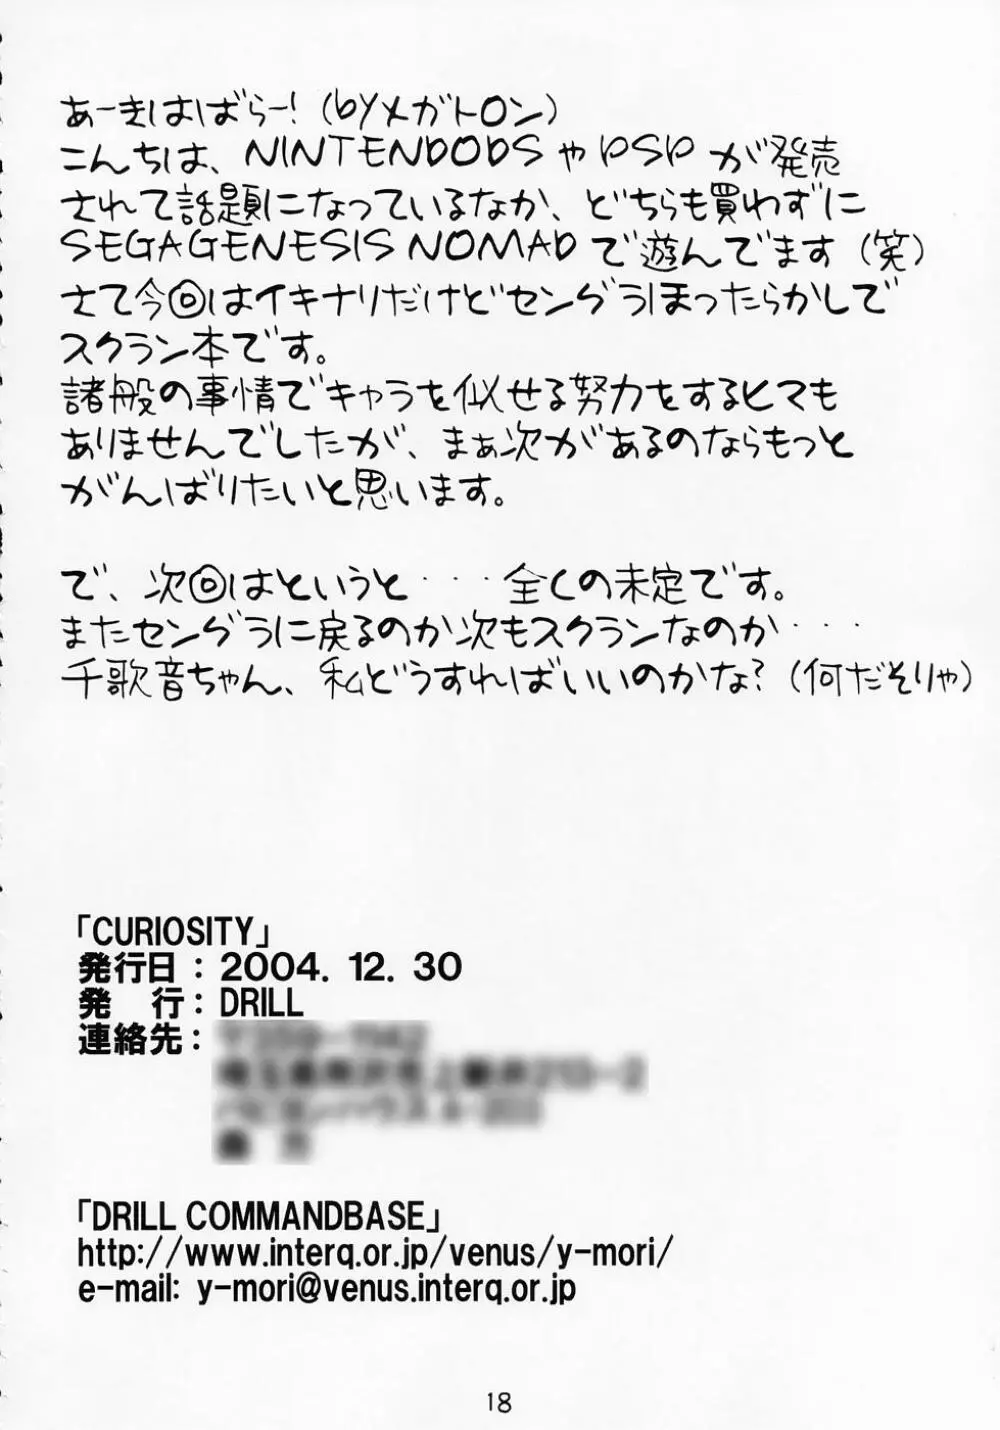 あーきはばらー!(byメガトロン)
こんちは、NINTENDODSやPSPが発売
されて話題になっているなか、どちらも買わずに
SEGAGENESIS NOMADで遊んでます(笑)
さて今回はイキナリだけどセングラほったらかしで
スクラン本です。
諸般の事情でキャラを似せる努力をするヒマも
ありませんでしたが、まぁ次があるのならもっと
がんばりたいと思います。
で、次回はというと・・・全くの未定です。
またセングラに戻るのか次もスクランなのか・・・
千歌音ちゃん、私どうすればいいのかな?(何だそりゃ)
「CURIOSITY」
発行日:2004.12.30
発 行:DRILL
連絡先:
「DRILL COMMANDBASE」
http://www.interq.or.jp/venus/y-mori/
e-mail: y-mori@venus.interq.or.jp
18